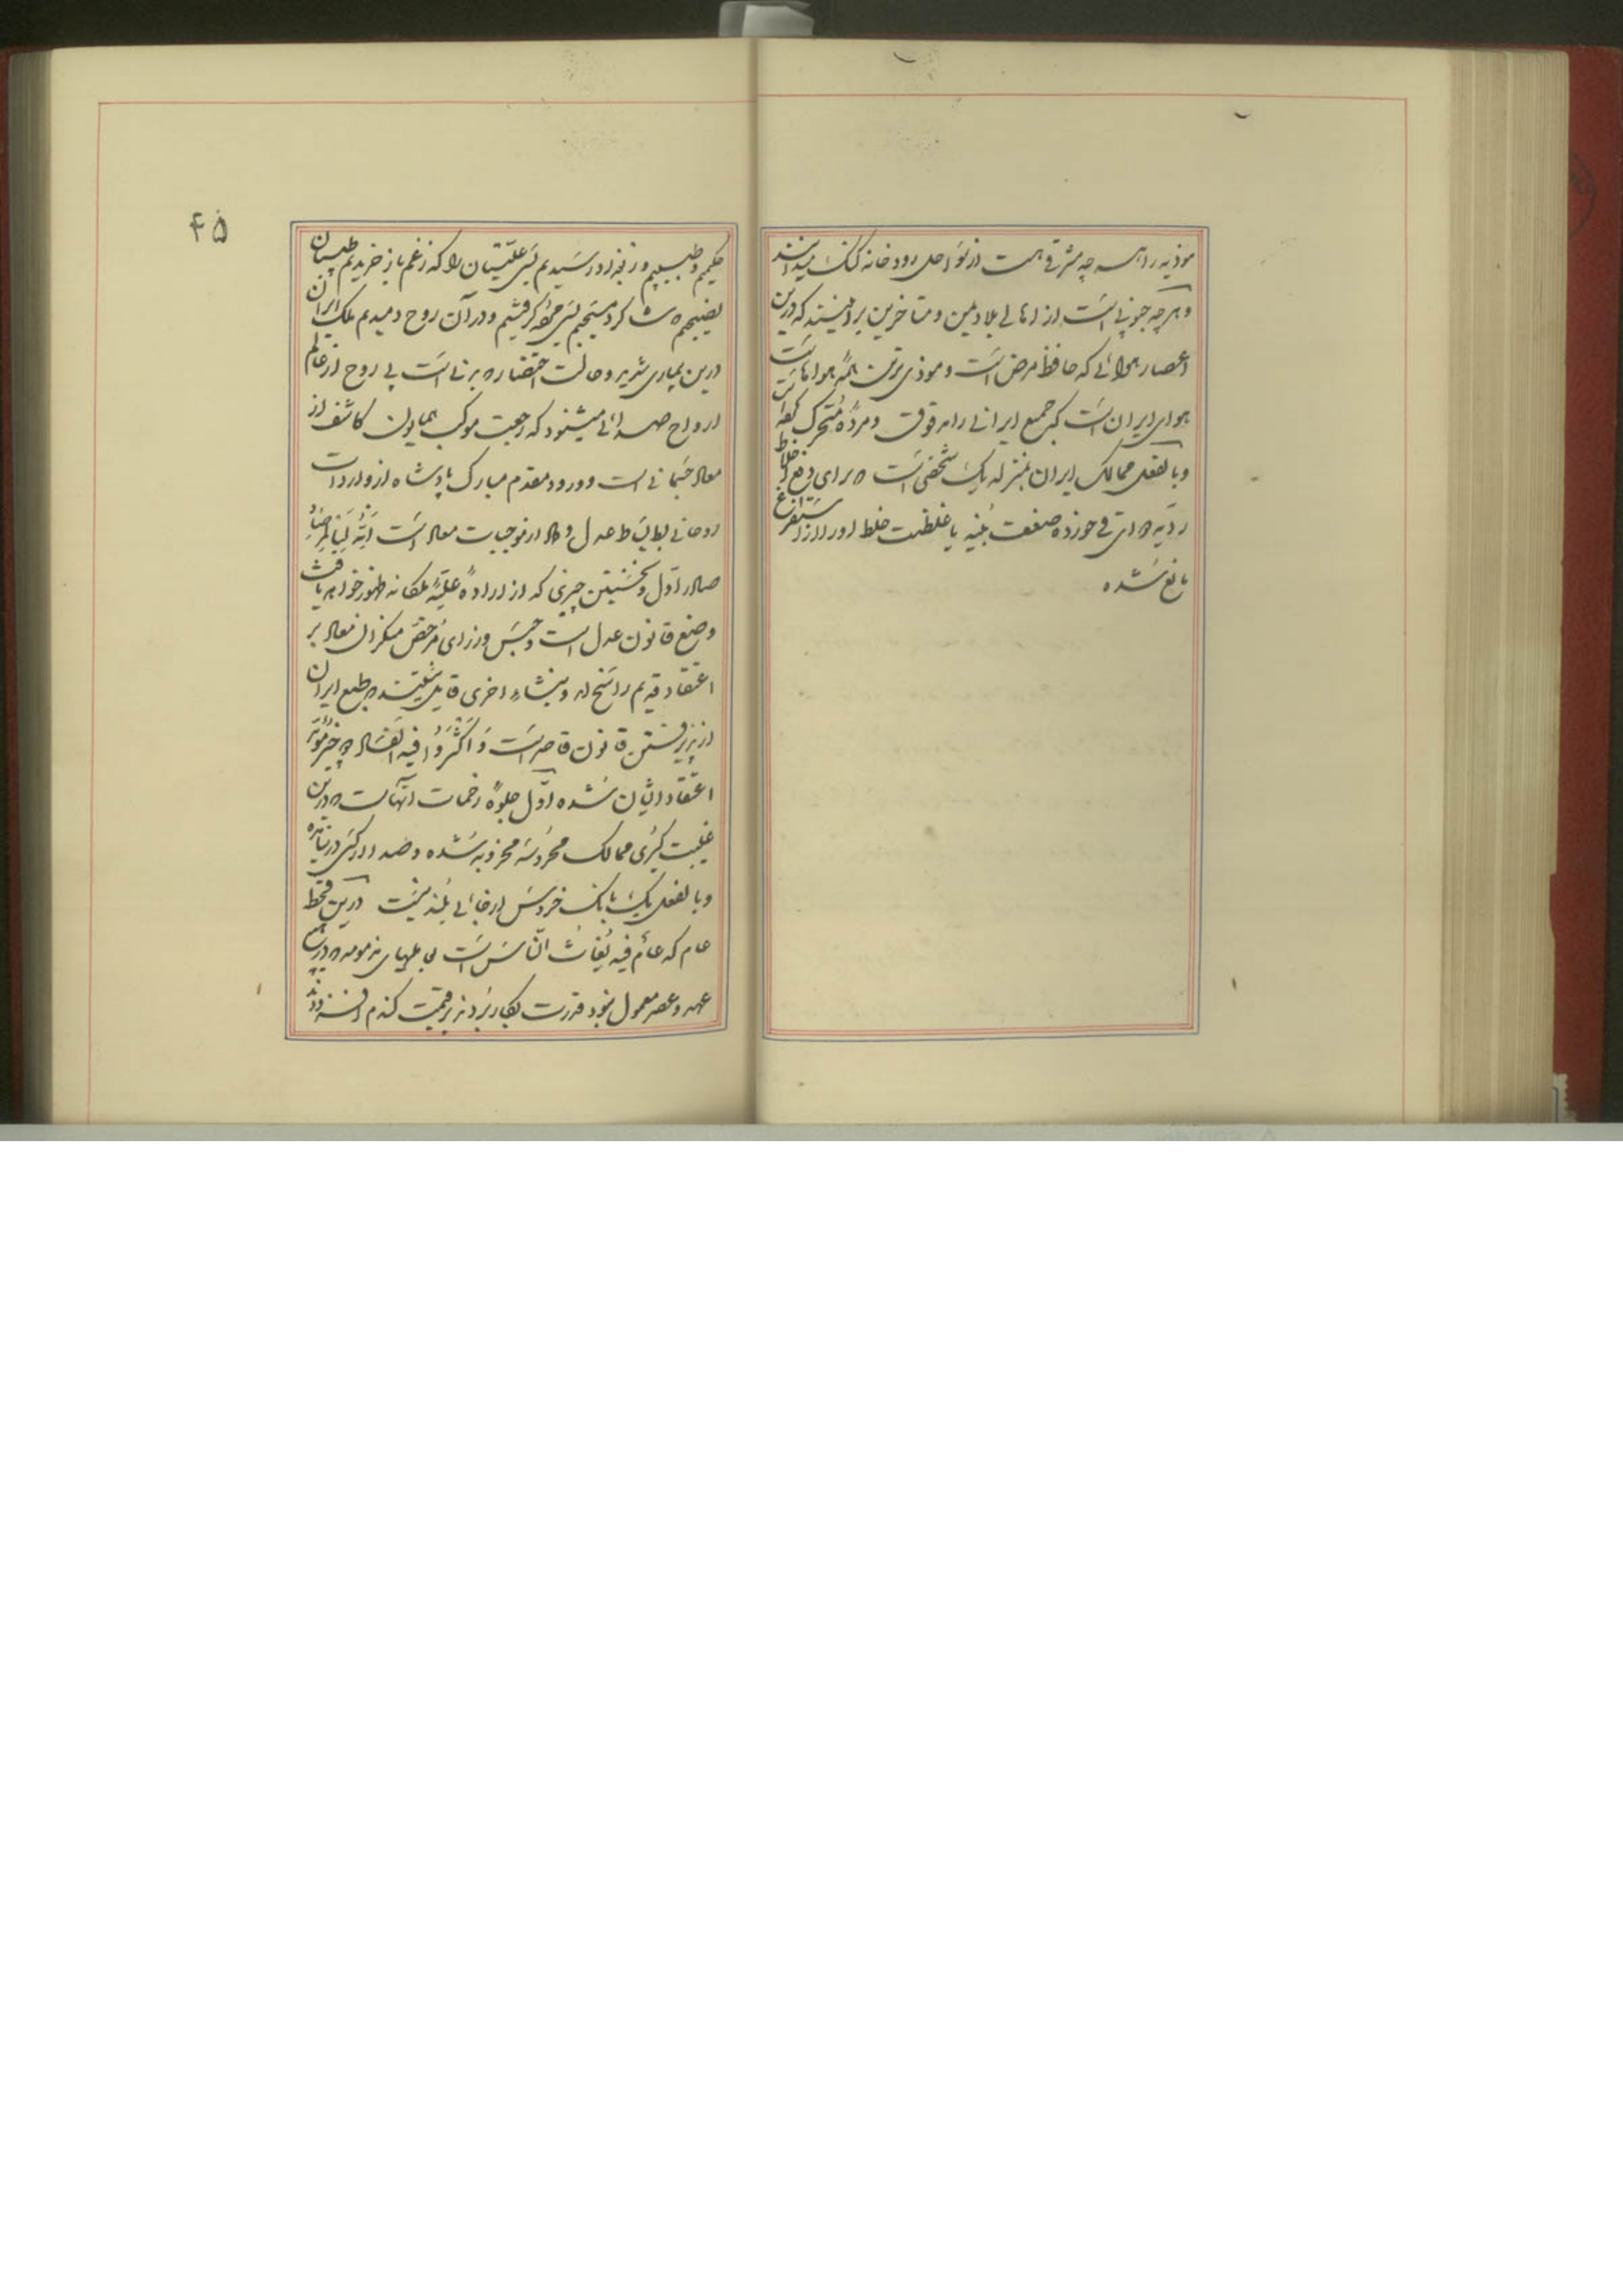 موذیه را هر چه مشرقی است از نواحل رودخانه گنگ میدانند
و هر چه جنوبی است از اهالی بلاد یمن و متاخرین برآنند که درین
اعصار هوائی که حافظ مرض است و موذی ترین همه هواهاست
هوای ایران است که جمیع ایرانی را مدقوق و مرده متحرک کرده است
و بالفعل ممالک ایران بمنزله یک شخصی است که برای دفع اخلاط
ردیه دوائی خورده ضعف بنیه یا غلظت خلط او را از استفراغ
مانع شده
۴۵
حکیمیم و طبیبیم و ز بغداد رسیدیم بسی علتیان را که ز غم باز خریدیم طبیبان
فصیحیم که شاگرد مسیحیم بسی مرده گرفتیم و در آن روح دمیدیم ملک ایران
درین بیماری شدید و حالت احتضار که بدنی است بی روح از عالم
ارواح صدائی میشنود که رجعت موکب همایون کاشف از
معاد جسمانی است و ورود مقدم مبارک پادشاه از واردات
روحانی بساط عدل و داد از موجبات معاد است
صادر اول و نخستین چیزی که از اراده علیه ملکانه ظهور خواهد یافت
وضع قانون عدل است و حبس وزرای مرخص منکران معاد بر
اعتقاد قدیم راسخ اند و بنشاء اخری قایل نیستند که طبع ایران
از پذیرفتن قانون قاصر است و اکثروا فیه الفساد هر چیز موید
اعتقاد ایشان شده اول جلوه زحمات آنهاست که درین
غیبت کبری ممالک محروسه مخروبه شده و صدا از کسی در نیامده
و بالفعل یک بانک خروس از جائی بلند نیست درین قحط
عام که عام فیه یغاث الناس است بی عملهای مذمومه که در هیچ
عهد و عصر معمول نبود قدرت بکار بردند بر قیمت گندم افزودند